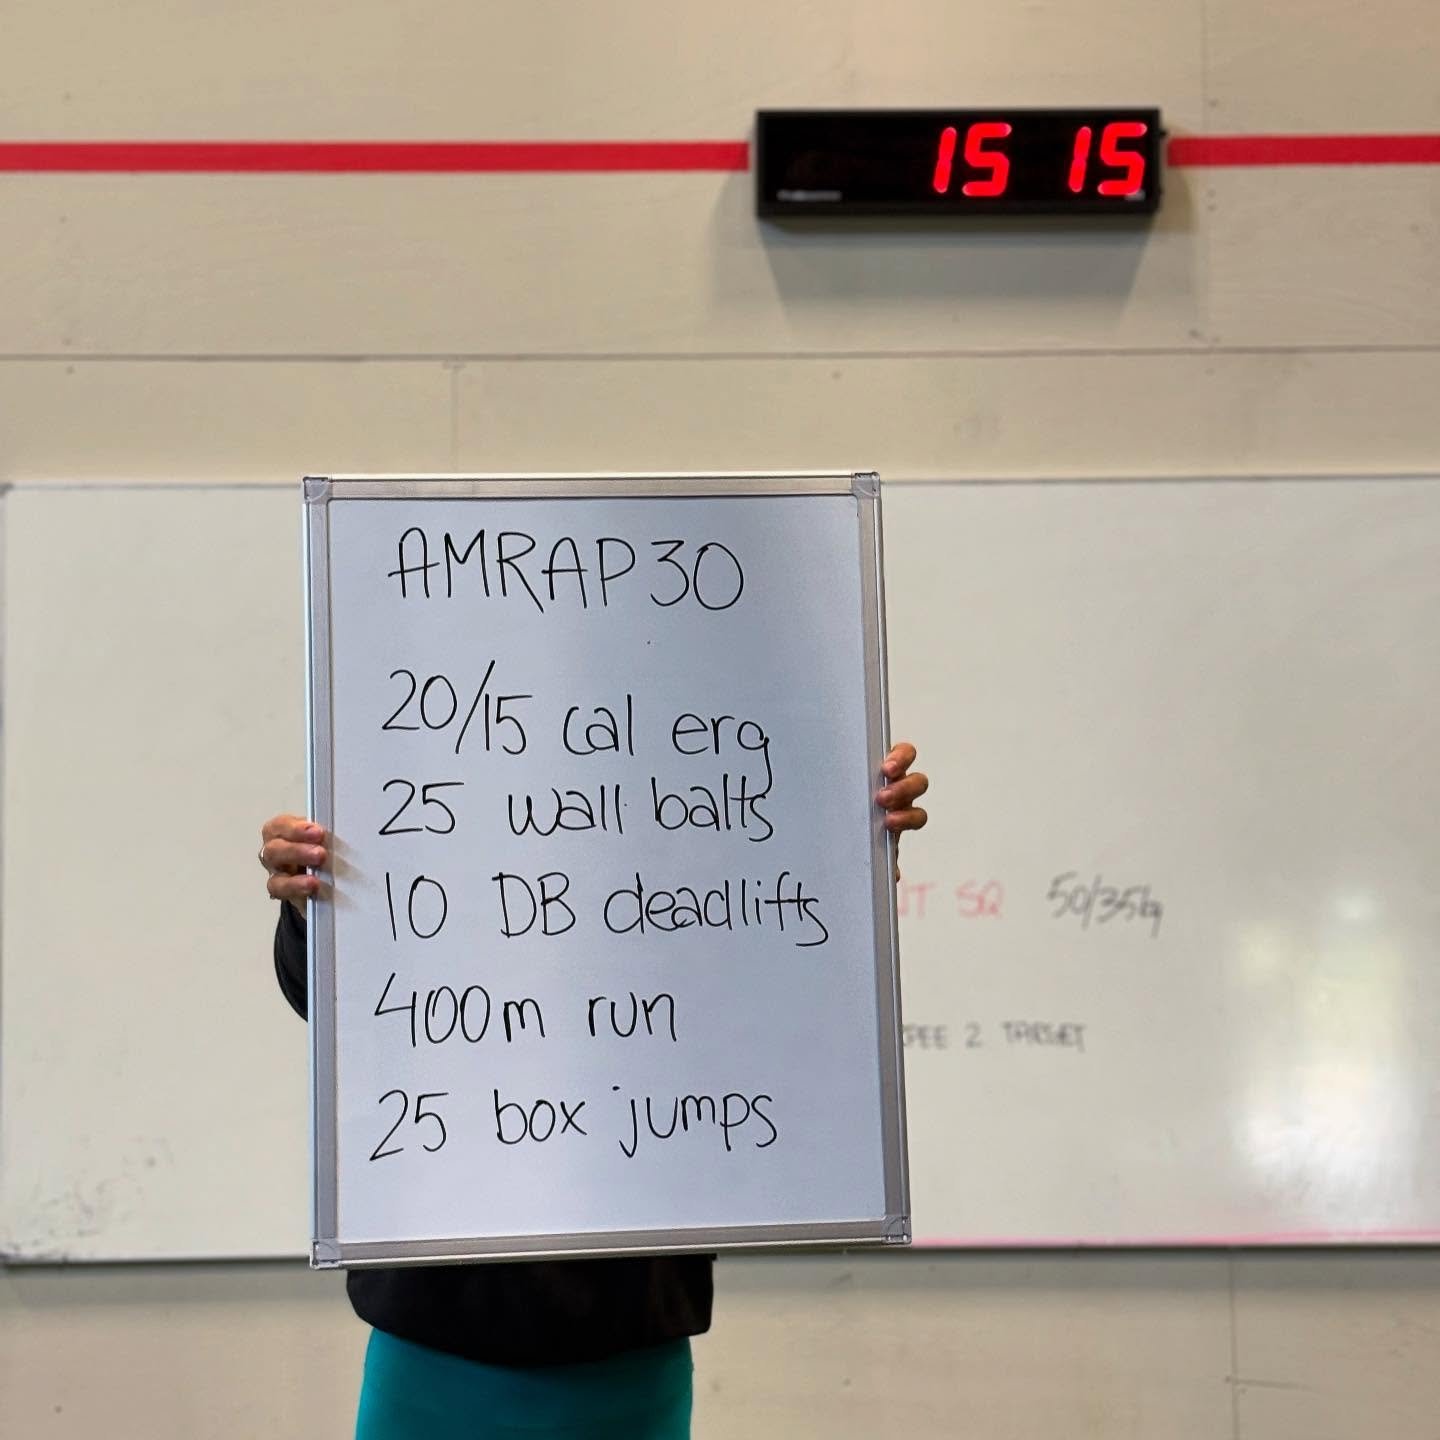 15 15
AMRAP 30
20/15 cal erg
25 wall balls
10 DB deadlifts
400m run
25 box jumps
SQ 50/35kg
2 TARGET